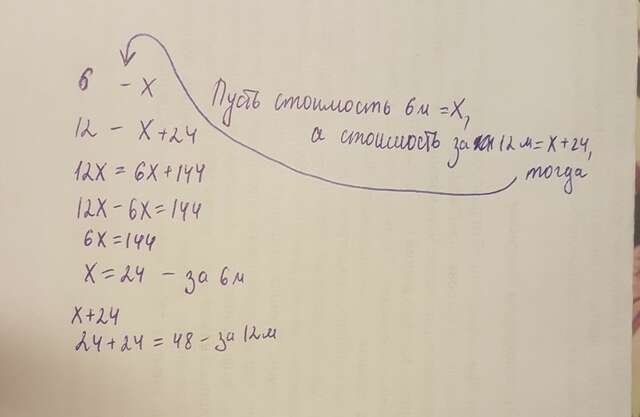 Пусть стоимость 6м = X,
а стоимость за 12м = X+24,
тогда
6 - X
12 - X+24
12X = 6X+144
12X - 6X = 144
6X = 144
X = 24 - за 6м
X+24
24+24 = 48 - за 12м